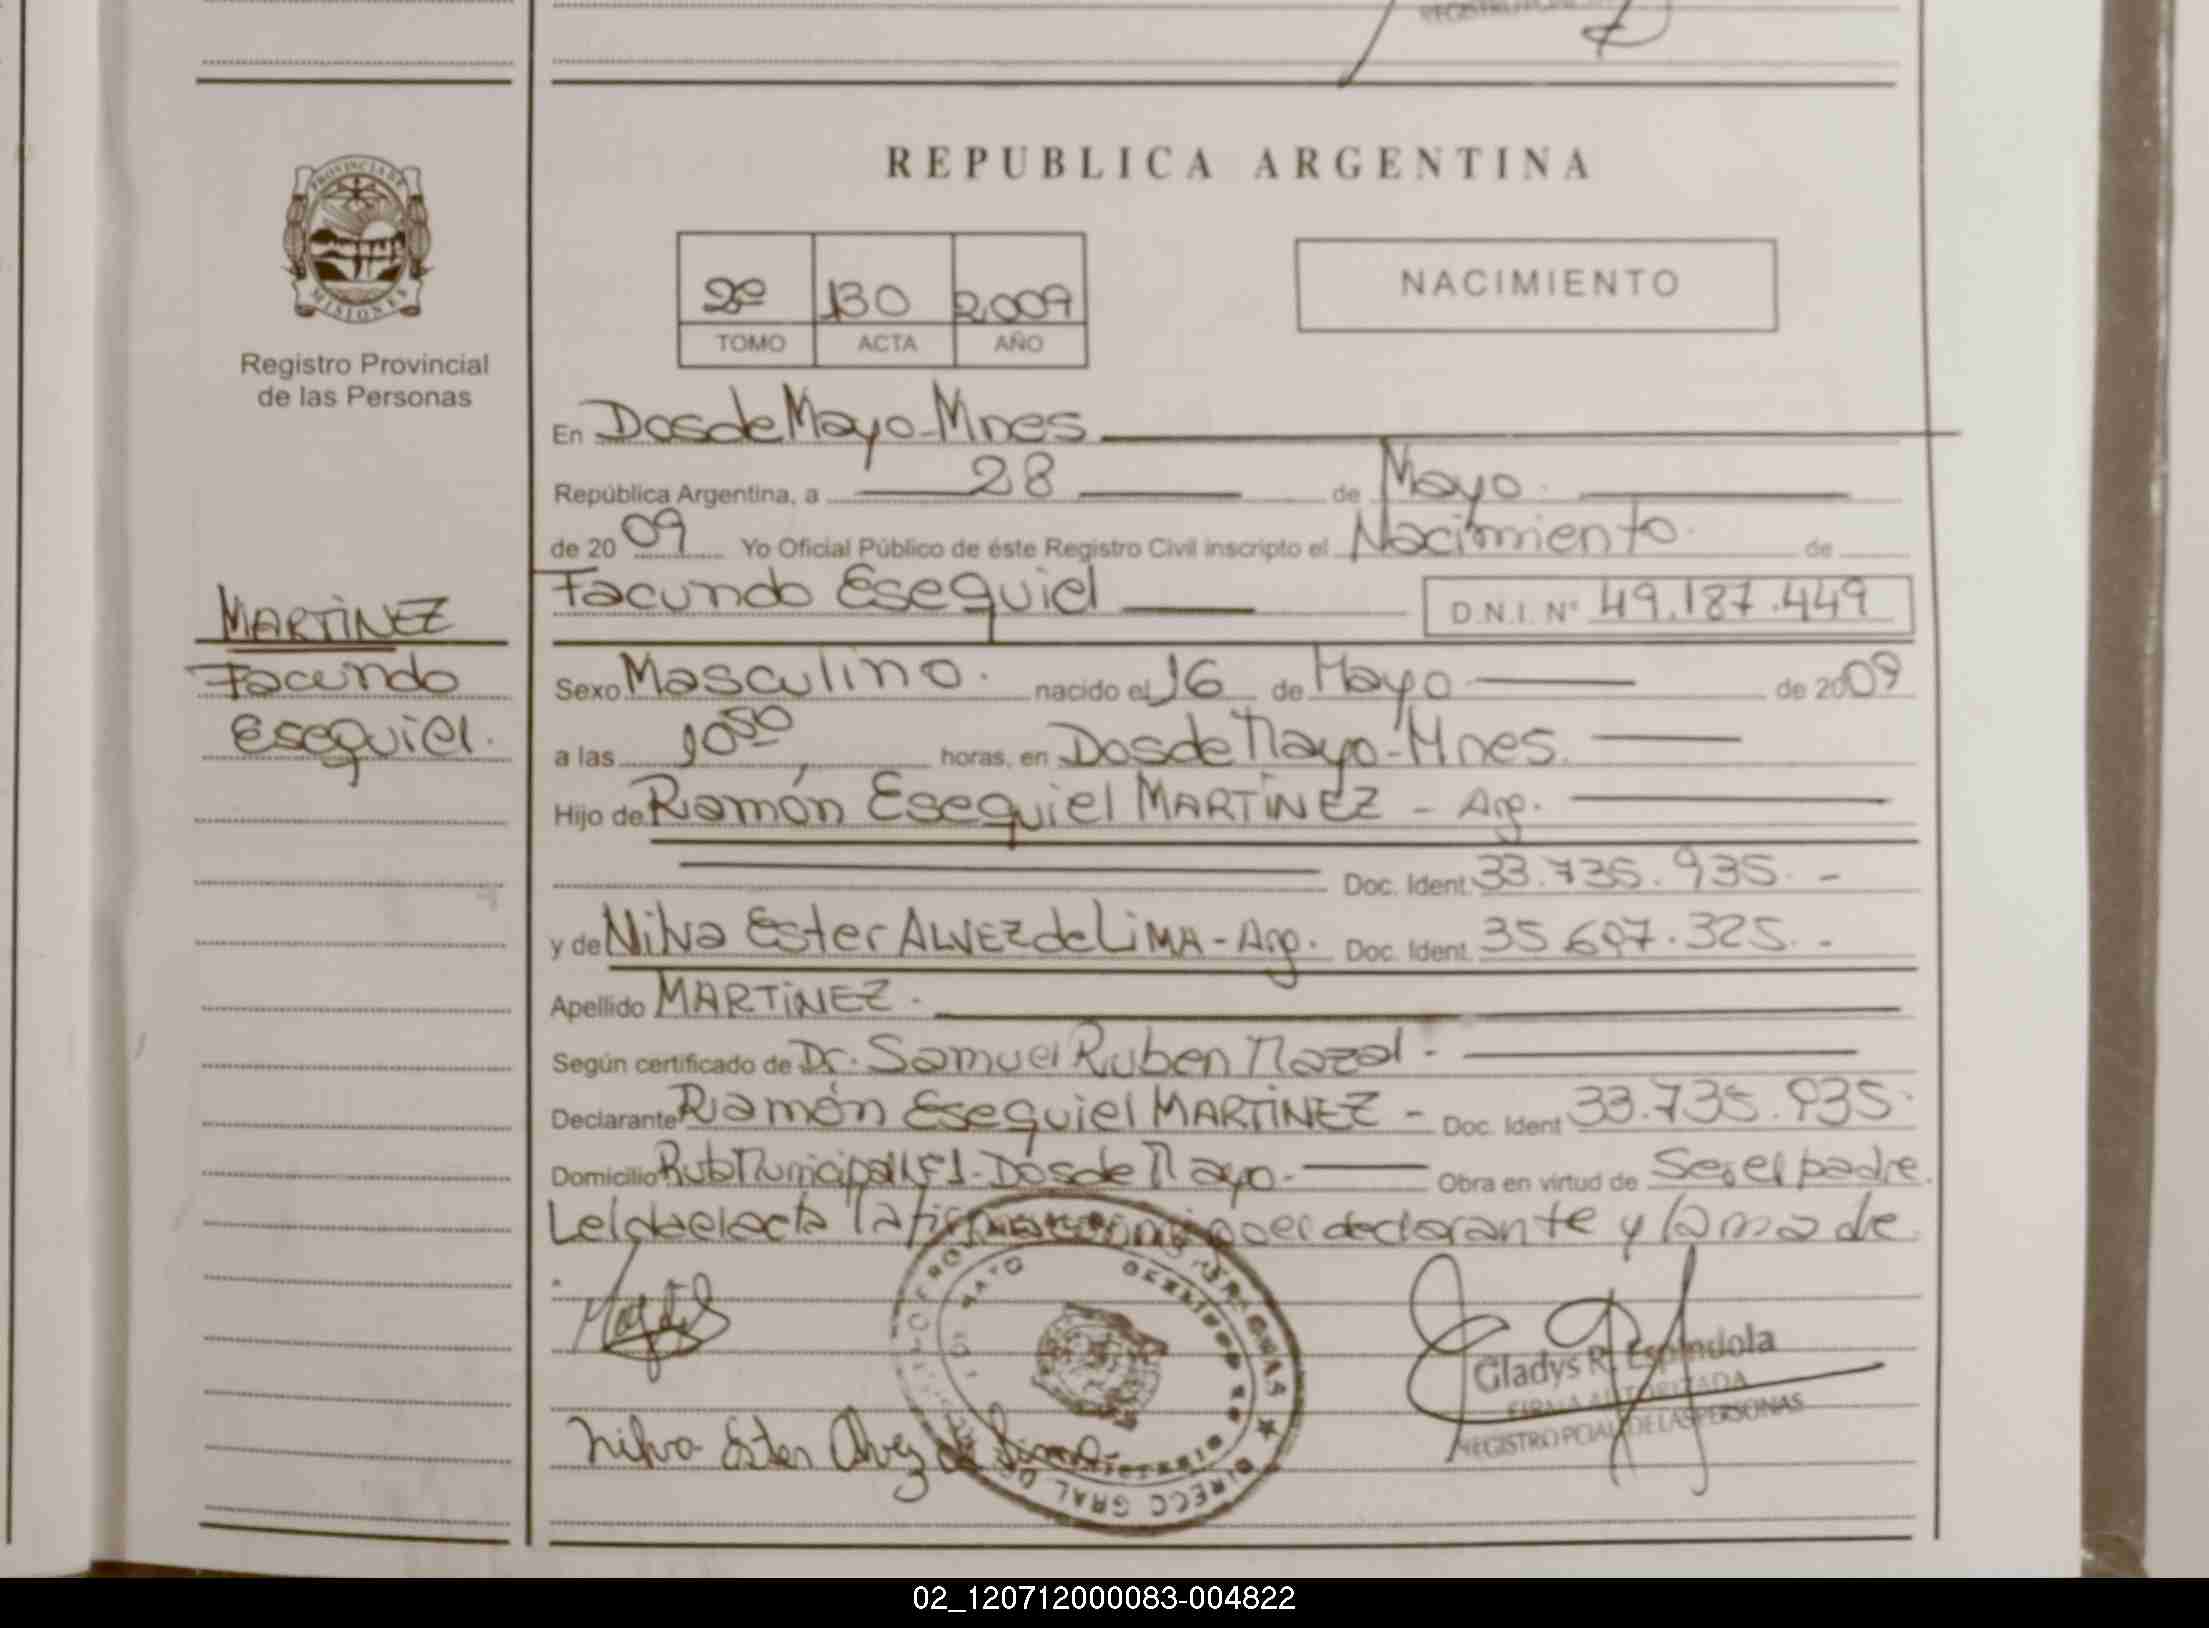 REPUBLICA ARGENTINA
PROVINCIA DE
MISIONES
Registro Provincial
de las Personas
2º 130 2.009
TOMO ACTA AÑO
NACIMIENTO
En Dos de Mayo - Mnes
República Argentina, a 28 de Mayo.
de 2009 Yo Oficial Público de éste Registro Civil inscripto el Nacimiento. de
Facundo Esequiel D.N.I. Nº 49.187.449
MARTÍNEZ
Facundo
Esequiel.
Sexo Masculino. nacido el 16 de Mayo de 2009
a las 10 50 horas, en Dos de Mayo - Mnes.
Hijo de Ramón Esequiel MARTÍNEZ - Arg.
Doc. Ident. 33.735.935. -
y de Nilva Ester ALVEZ de LiMA - Arg. Doc. Ident. 35.697.325. -
Apellido MARTÍNEZ.
Según certificado de Dr. Samuel Ruben Nazal -
Declarante Ramón Esequiel MARTÍNEZ - Doc. Ident 33.735.935.
Domicilio Ruta Municipal Nº 1 - Dos de Mayo. - Obra en virtud de Ser el padre.
Leída el acta la firman conmigo el declarante y la madre.
DIRECC GRAL DE
MAYO
Nilva Ester Alvez de Lima
Gladys R. Espindola
FIRMA AUTORIZADA
REGISTRO PCIAL DE LAS PERSONAS
02_120712000083-004822